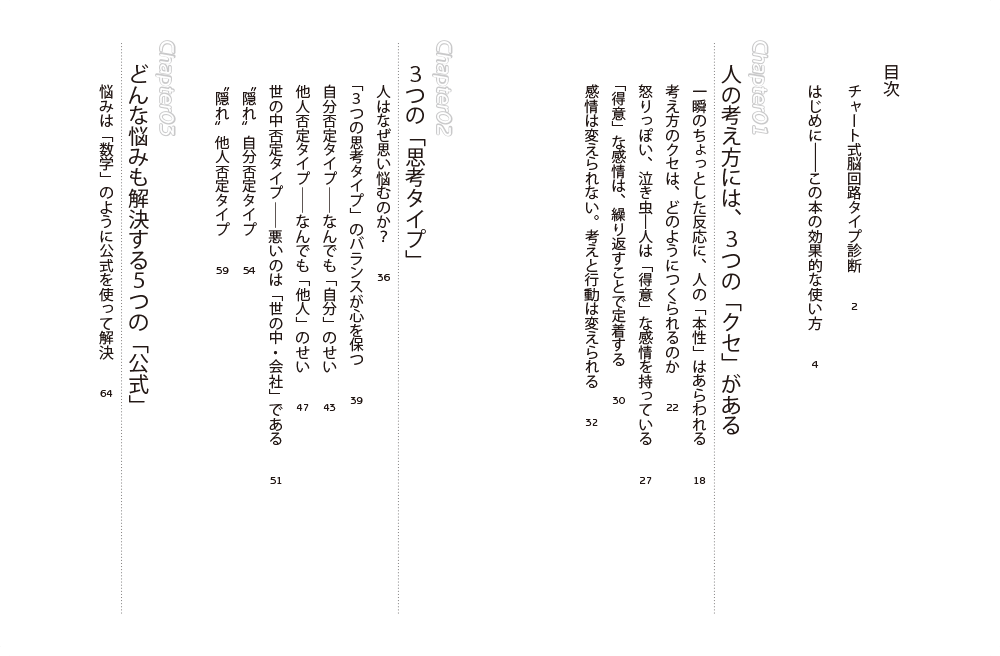 目次
チャート式脳回路タイプ診断 2
はじめに――この本の効果的な使い方 4
Chapter01
人の考え方には、3つの「クセ」がある
一瞬のちょっとした反応に、人の「本性」はあらわれる 18
考え方のクセは、どのようにつくられるのか 22
怒りっぽい、泣き虫―人は「得意」な感情を持っている 27
「得意」な感情は、繰り返すことで定着する 30
感情は変えられない。考えと行動は変えられる 32
Chapter02
3つの「思考タイプ」
人はなぜ思い悩むのか？ 36
「3つの思考タイプ」のバランスが心を保つ 39
自分否定タイプ――なんでも「自分」のせい 43
他人否定タイプ――なんでも「他人」のせい 47
世の中否定タイプ――悪いのは「世の中・会社」である 51
〝隠れ〟自分否定タイプ 54
〝隠れ〟他人否定タイプ 59
Chapter03
どんな悩みも解決する5つの「公式」
悩みは「数学」のように公式を使って解決 64